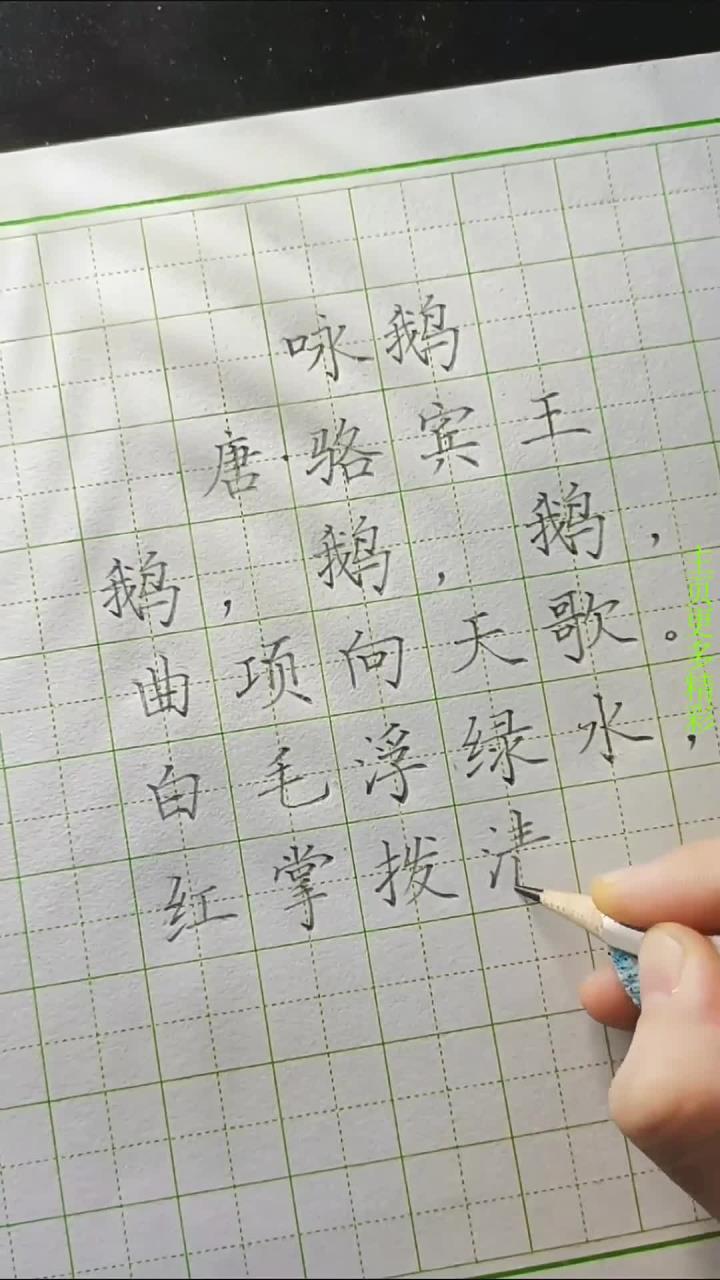 咏鹅
唐·骆宾王
鹅，鹅，鹅，
曲项向天歌。
白毛浮绿水，
红掌拨清
主页更多精彩